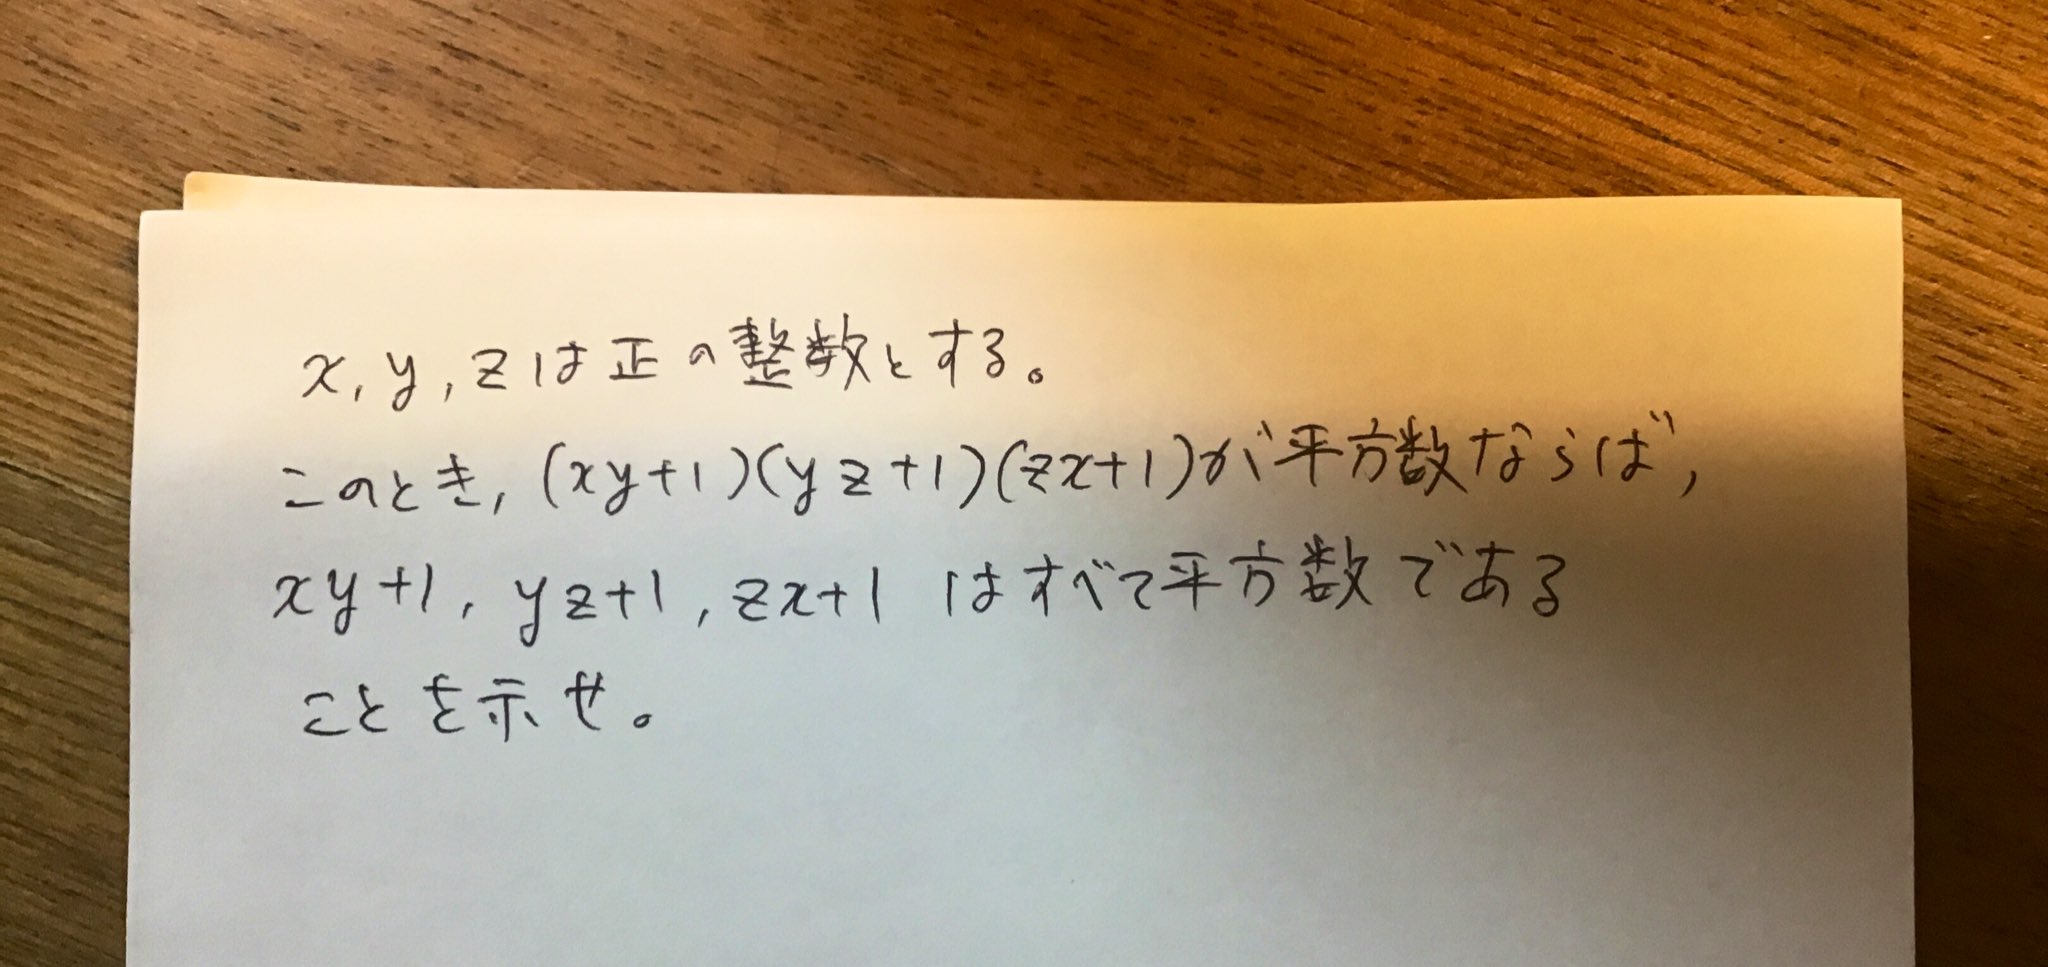 x, y, zは正の整数とする。
このとき, (xy+1)(yz+1)(zx+1)が平方数ならば,
xy+1, yz+1, zx+1 はすべて平方数である
ことを示せ。